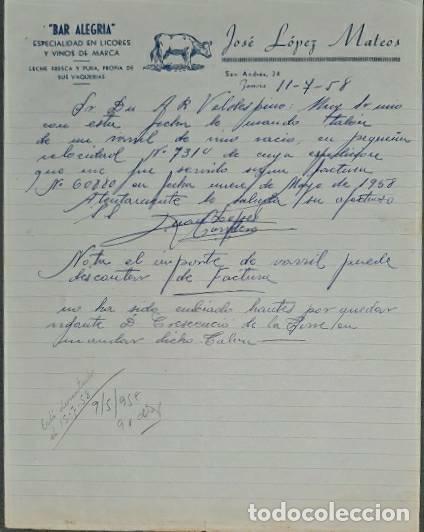 "BAR ALEGRIA"
ESPECIALIDAD EN LICORES
Y VINOS DE MARCA
LECHE FRESCA Y PURA, PROPIA DE
SUS VAQUERIAS
José López Mateos
San Andrés, 24
11-7-58
Sr Dn A R Valdespino: Muy Sr mio
con esta fecha le mando talón
de un varril de vino vacio, en pequeña
velocidad Nº 7310 de cuya
que me fue servido segun factura
Nº 60880 en fecha de Mayo de 1958
Atentamente le saluda su afectuso
S S
Nota el importe de varril puede
descontar de factura
no ha sido embiado hantes por quedar
D Crescencio de la Torre en
mandar dicho talon
9/5/958